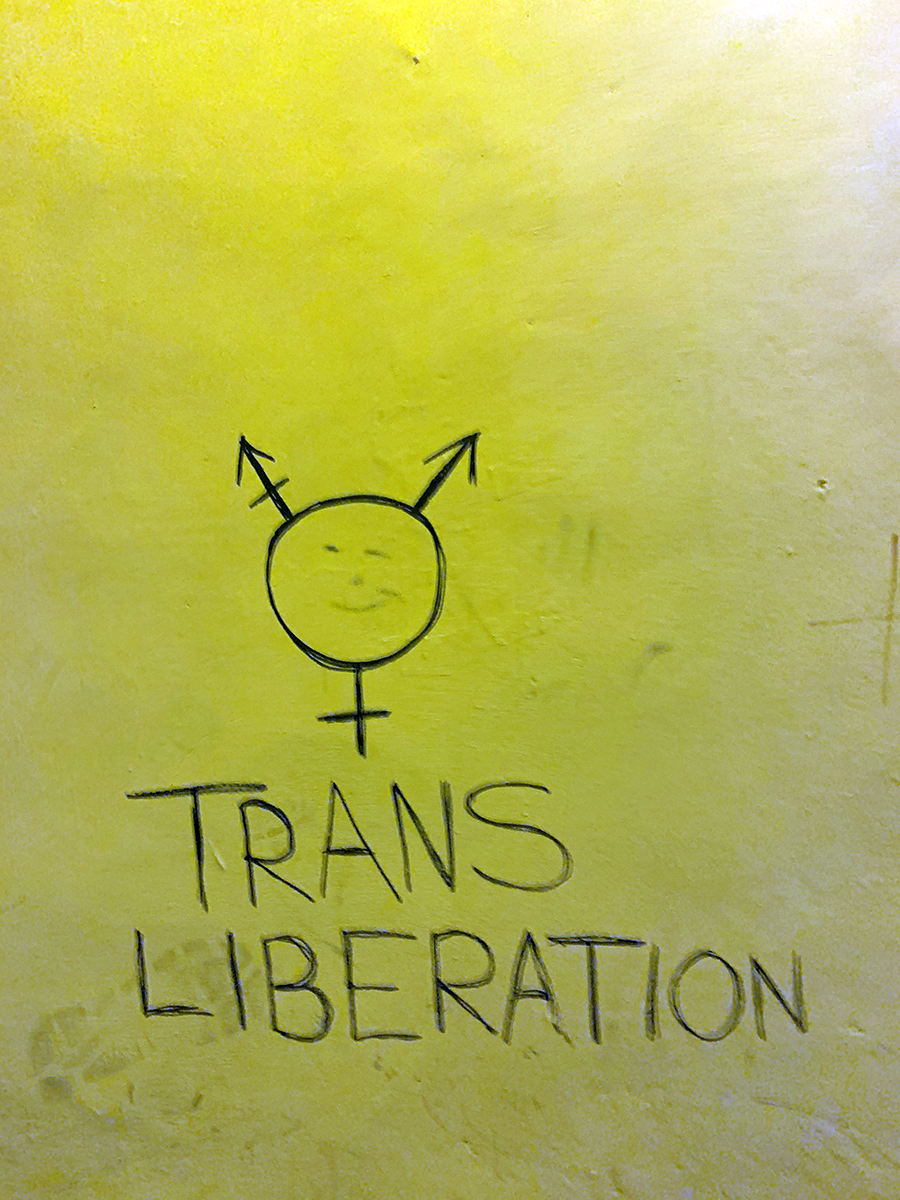 TRANS
LIBERATION